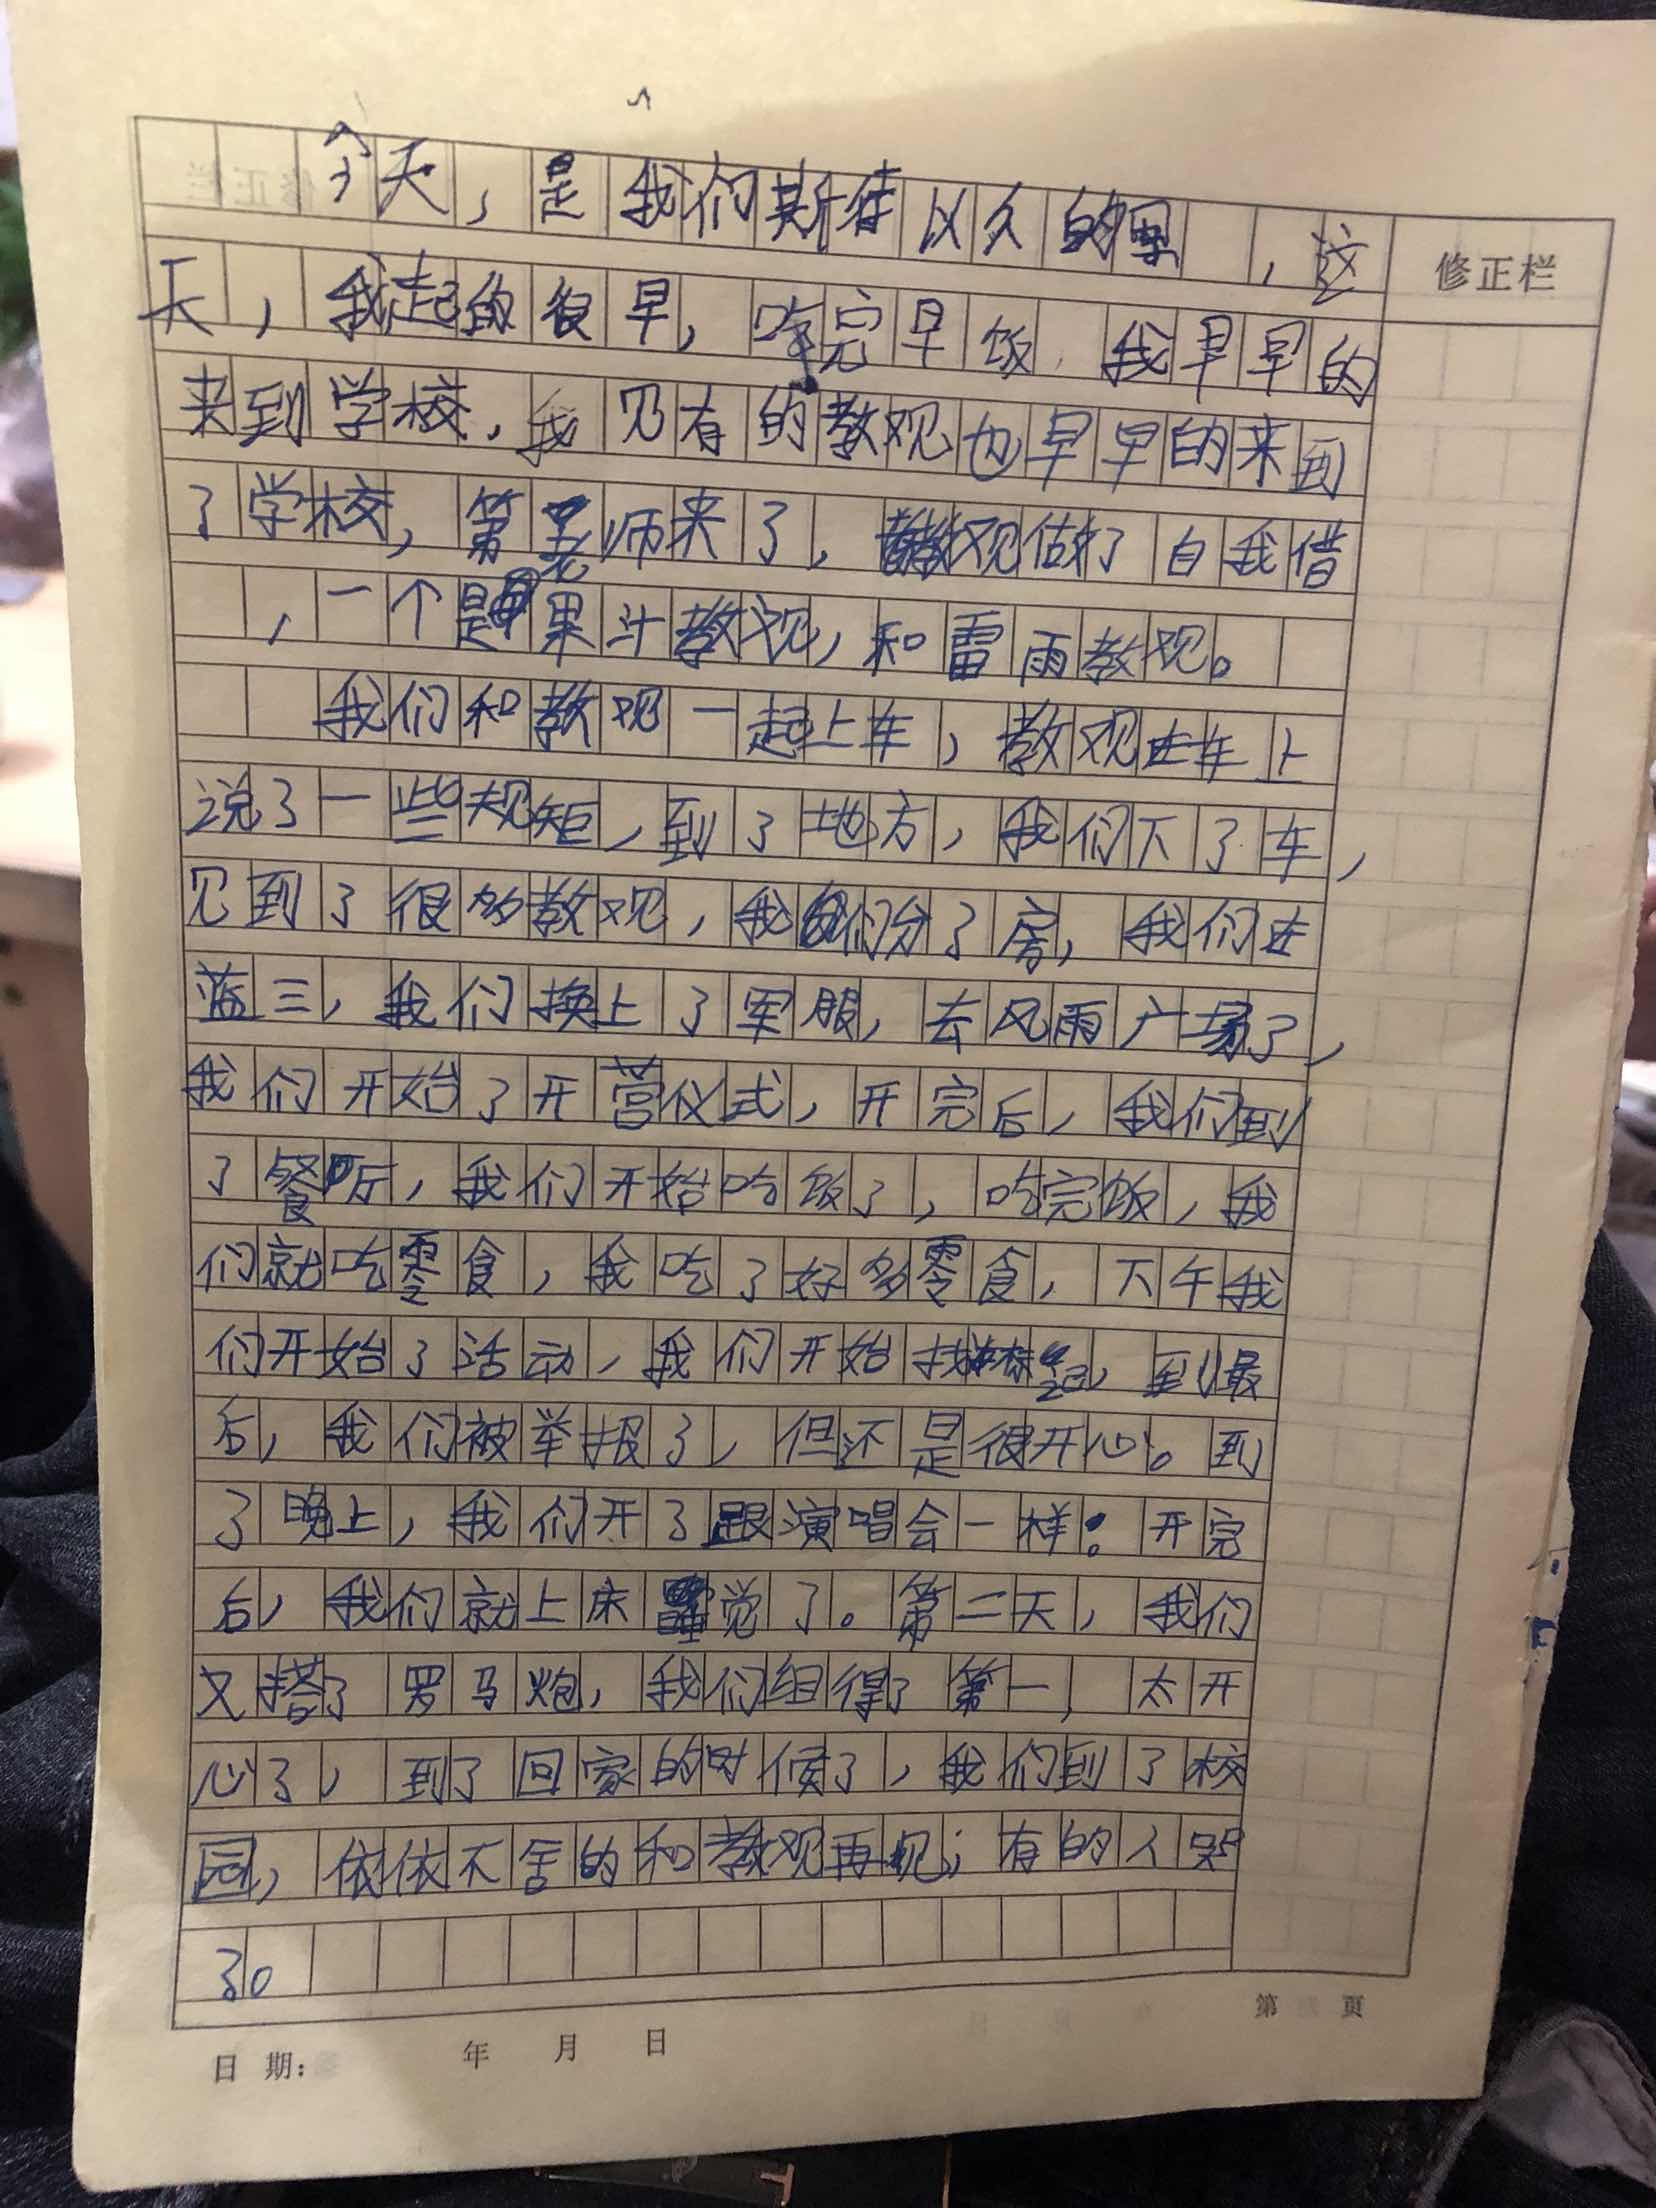 今天，是我们斯待以久的，这
天，我起的很早，吃完早饭，我早早的
来到学校，我见有的教观也早早的来到
了学校，第老师来了，教观做了自我借
，一个是果斗教观，和雷雨教观。
我们和教观一起上车，教观在车上
说了一些规矩，到了地方，我们下了车，
见到了很多教观，我们分了房，我们在
蓝三，我们换上了军服，去风雨广场了，
我们开始了开营仪式，开完后，我们到
了餐厅，我们开始吃饭了，吃完饭，我
们就吃零食，我吃了好多零食，下午我
们开始了活动，我们开始找标记，到最
后，我们被举报了，但还是很开心。到
了晚上，我们开了跟演唱会一样。开完
后，我们就上床睡觉了。第二天，我们
又搭了罗马炮，我们组得了第一，太开
心了，到了回家的时候了，我们到了校
园，依依不舍的和教观再见；有的人哭
了。
修正栏
日期： 年 月 日
第 页